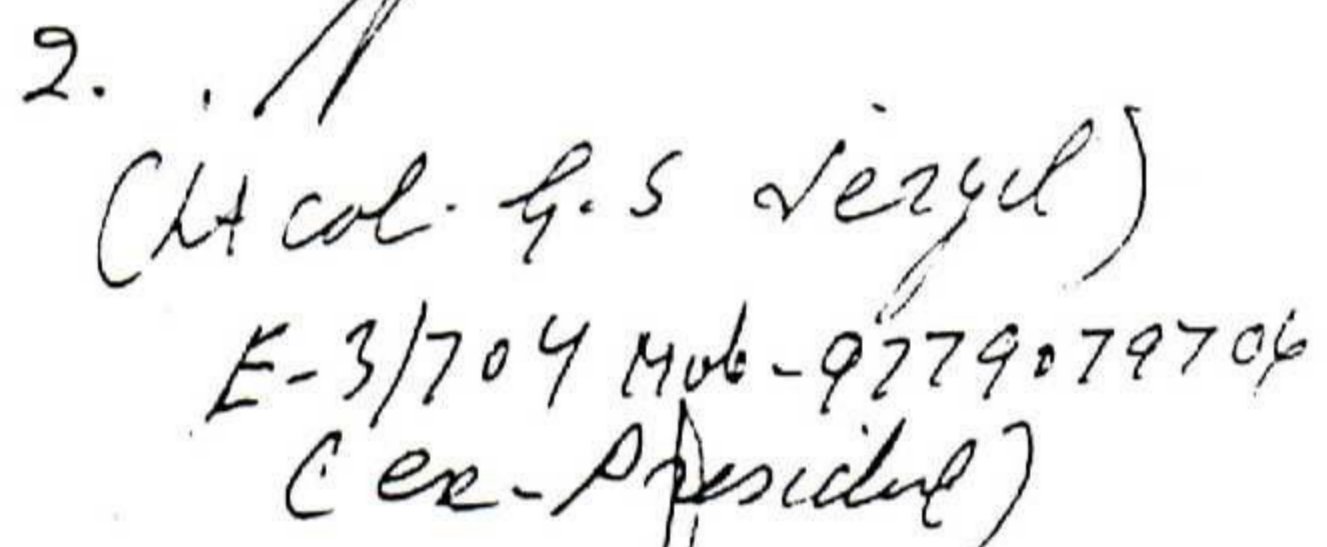 2.
(Lt col. G.S Jezyel)
E-3/704 Mob-9779079706
(ex-President)